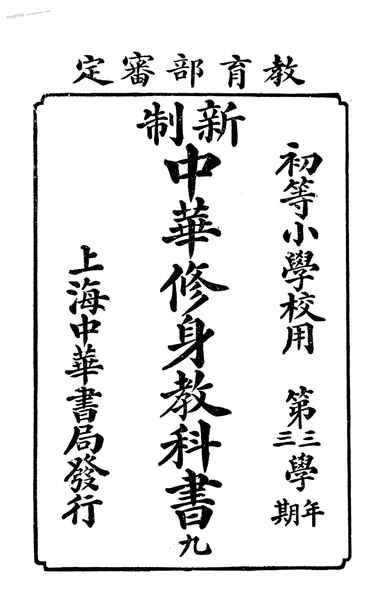 教育部審定
初等小學校用 第三三學年期
新制中華修身教科書九
上海中華書局發行